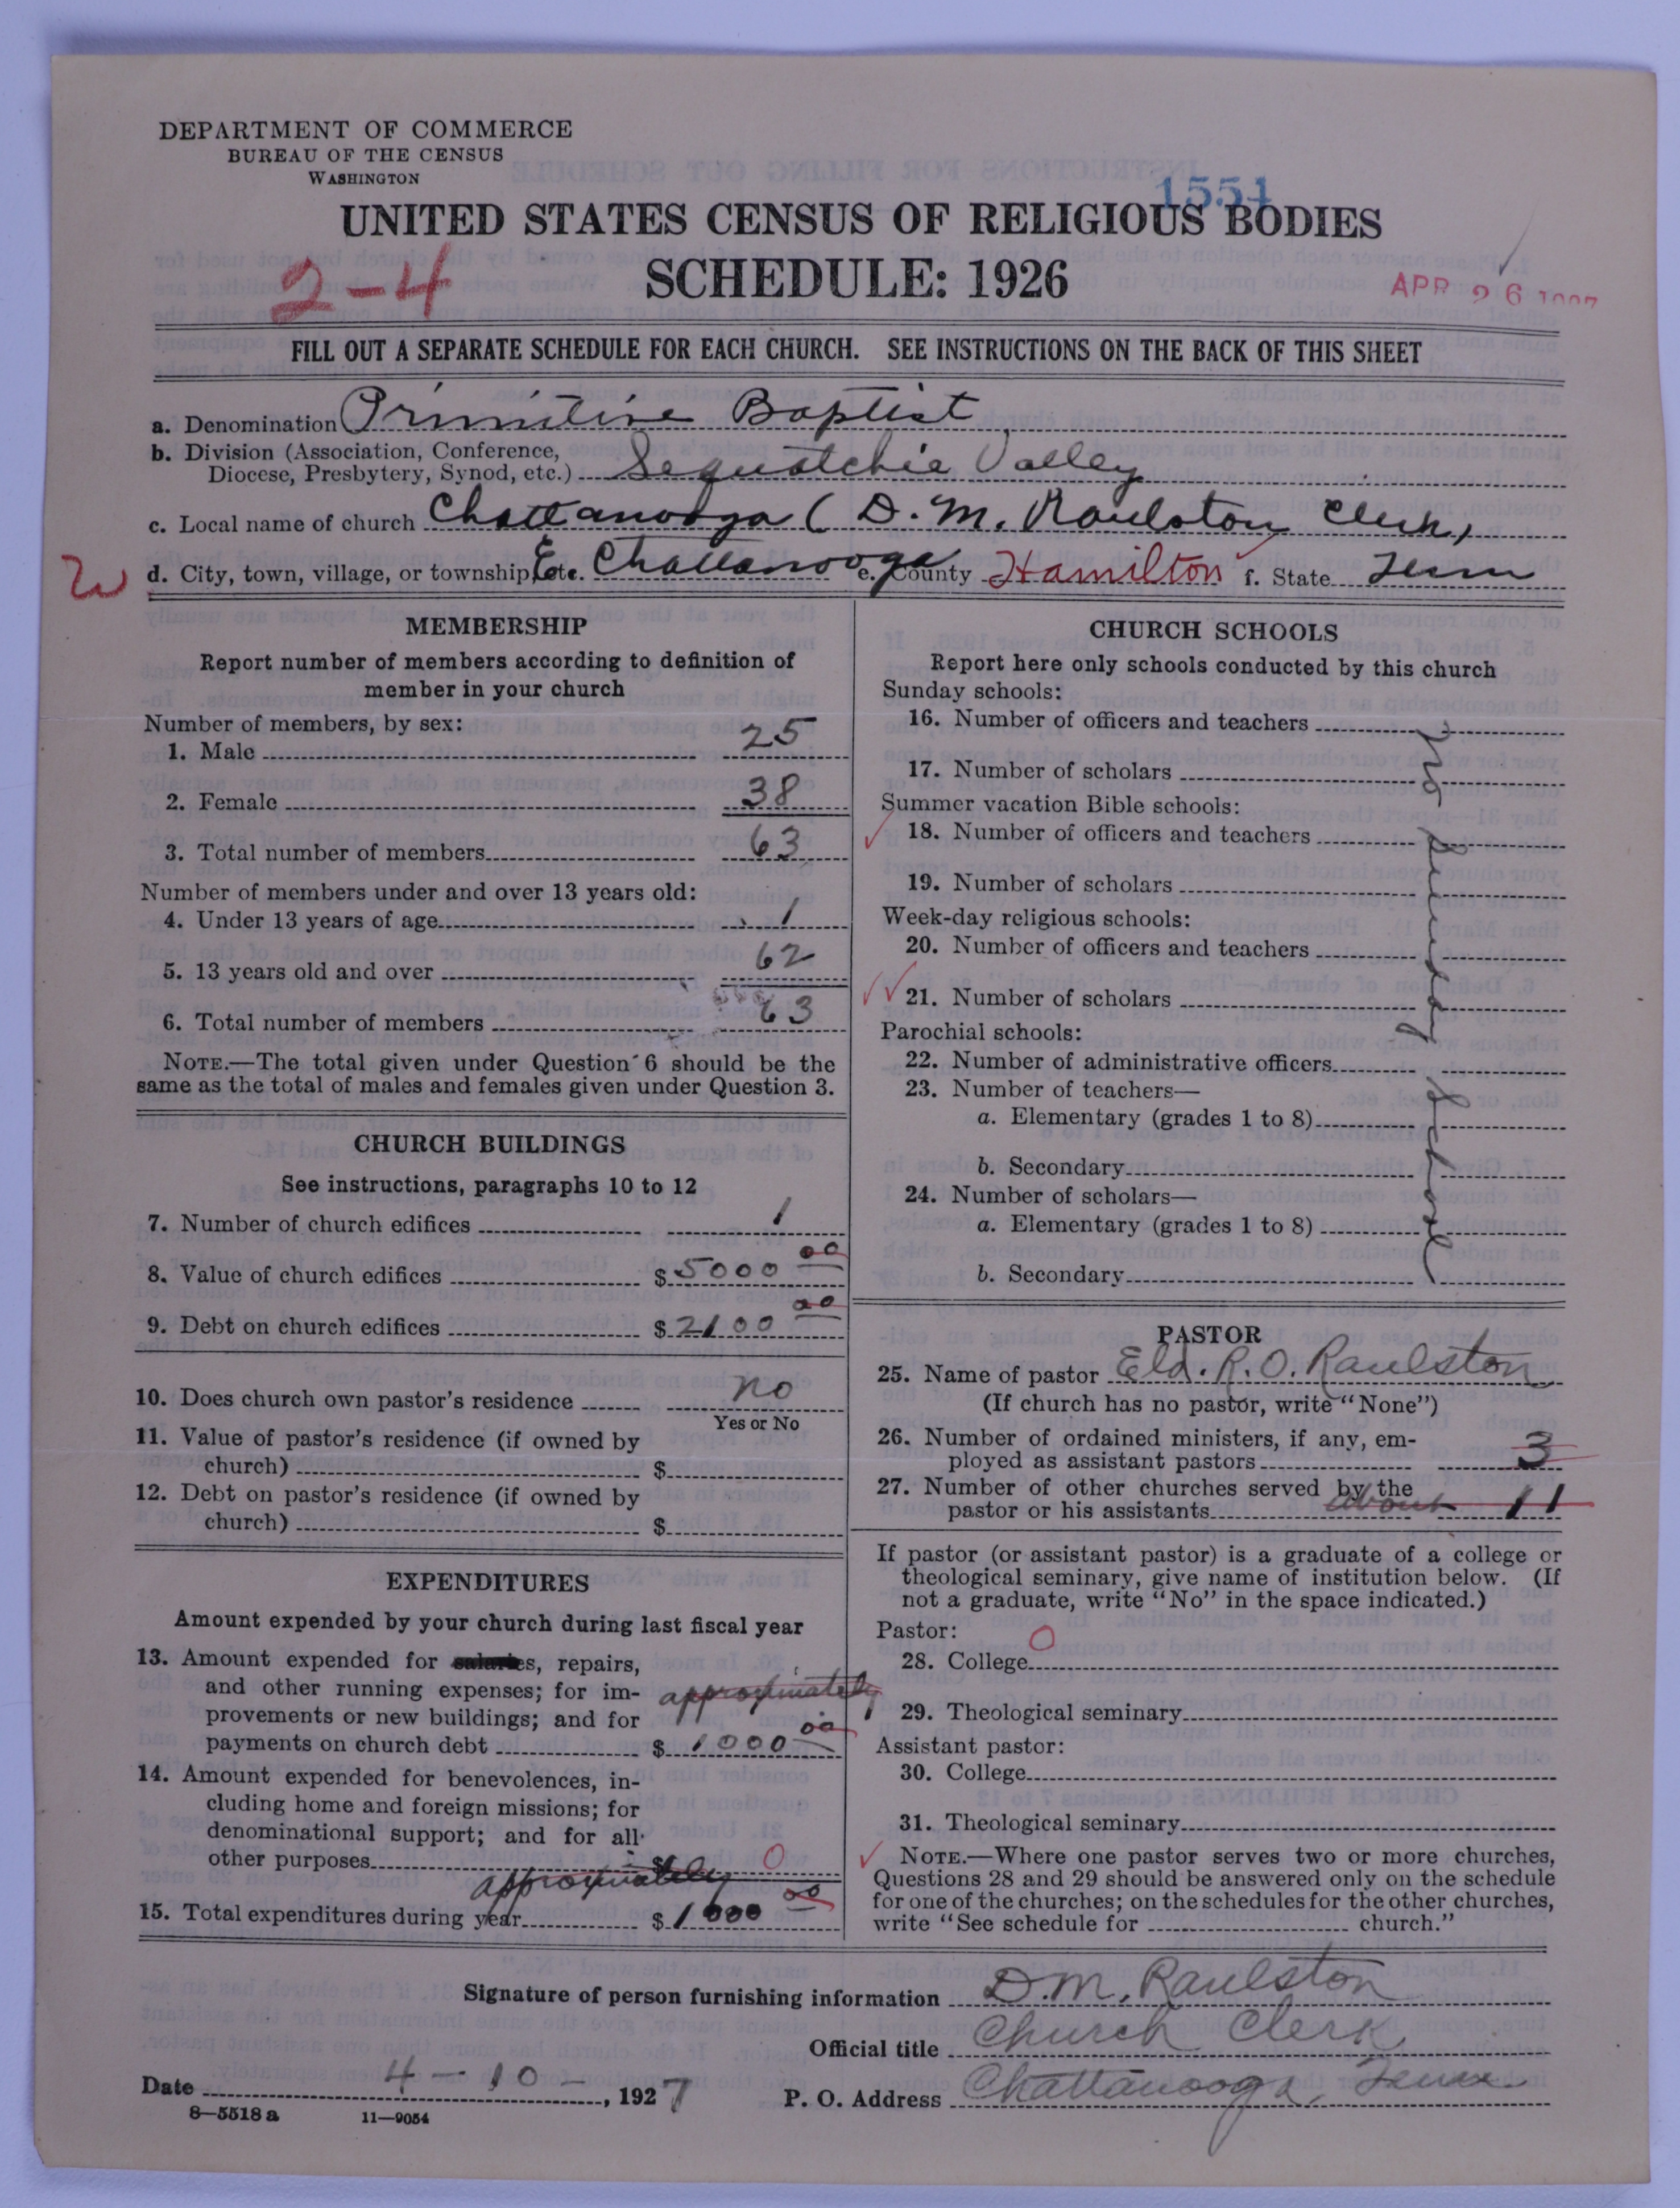 DEPARTMENT OF COMMERCE
BUREAU OF THE CENSUS
WASHINGTON
1551
UNITED STATES CENSUS OF RELIGIOUS BODIES
SCHEDULE: 1926
2-4
APR 26 1927
FILL OUT A SEPARATE SCHEDULE FOR EACH CHURCH. SEE INSTRUCTIONS ON THE BACK OF THIS SHEET
a. Denomination Primitive Baptist
b. Division (Association, Conference,
Diocese, Presbytery, Synod, etc.) Sequatchie Valley
c. Local name of church Chattanooga ( D. M. Raulston Clerk)
W d. City, town, village, or township, etc. E. Chattanooga e. County Hamilton f. State Tenn
MEMBERSHIP
Report number of members according to definition of
member in your church
Number of members, by sex:
1. Male 25
2. Female 38
3. Total number of members 63
Number of members under and over 13 years old:
4. Under 13 years of age 1
5. 13 years old and over 62
6. Total number of members 63
NOTE.—The total given under Question 6 should be the
same as the total of males and females given under Question 3.
CHURCH BUILDINGS
See instructions, paragraphs 10 to 12
7. Number of church edifices 1
8. Value of church edifices $ 5000 00
9. Debt on church edifices $ 2100 00
10. Does church own pastor's residence no
Yes or No
11. Value of pastor's residence (if owned by
church) $
12. Debt on pastor's residence (if owned by
church) $
EXPENDITURES
Amount expended by your church during last fiscal year
13. Amount expended for salaries, repairs,
and other running expenses; for im-
provements or new buildings; and for
approximately
payments on church debt $ 1000 00
14. Amount expended for benevolences, in-
cluding home and foreign missions; for
denominational support; and for all
other purposes $ 0
approximately
15. Total expenditures during year $ 1000 00
CHURCH SCHOOLS
Report here only schools conducted by this church
Sunday schools:
16. Number of officers and teachers
17. Number of scholars
Summer vacation Bible schools:
18. Number of officers and teachers
19. Number of scholars
Week-day religious schools:
20. Number of officers and teachers
21. Number of scholars
Parochial schools:
22. Number of administrative officers
23. Number of teachers—
a. Elementary (grades 1 to 8)
b. Secondary
24. Number of scholars—
a. Elementary (grades 1 to 8)
b. Secondary
PASTOR
25. Name of pastor Eld. R. O. Raulston
(If church has no pastor, write "None")
26. Number of ordained ministers, if any, em-
ployed as assistant pastors 3
27. Number of other churches served by the
pastor or his assistants about 11
If pastor (or assistant pastor) is a graduate of a college or
theological seminary, give name of institution below. (If
not a graduate, write "No" in the space indicated.)
Pastor:
28. College 0
29. Theological seminary
Assistant pastor:
30. College
31. Theological seminary
NOTE.—Where one pastor serves two or more churches,
Questions 28 and 29 should be answered only on the schedule
for one of the churches; on the schedules for the other churches,
write "See schedule for church."
Signature of person furnishing information D. M. Raulston
Official title Church Clerk
Date 4 - 10 - , 1927 P. O. Address Chattanooga, Tenn.
8—5518 a 11—9054